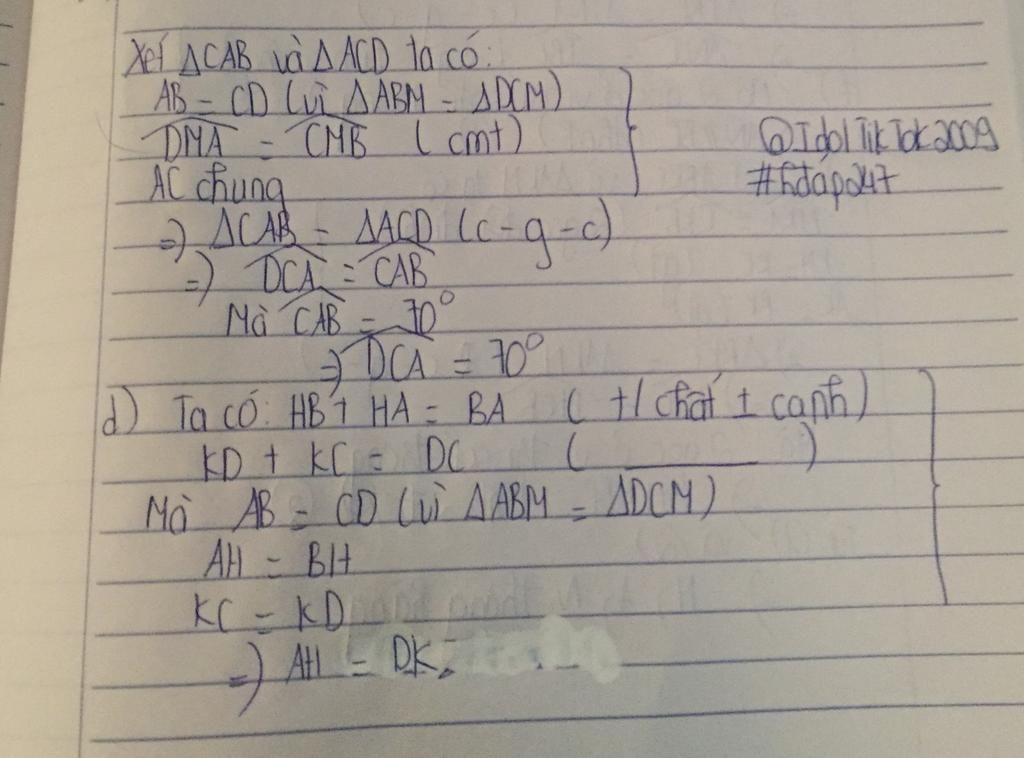 Xét ΔCAB và ΔACD ta có:
AB = CD (vì ΔABM = ΔDCM)
DMA = CMB ( cmt)
AC chung
@IdolTikTok2009
#hdap247
=) ΔCAB = ΔACD (c-g-c)
=) DCA = CAB
Mà CAB = 70°
=) DCA = 70°
d) Ta có: HB + HA = BA ( t/ chất 1 cạnh)
KD + KC = DC ( ______ )
Mà AB = CD (vì ΔABM = ΔDCM)
AH = BH
KC = KD
=) AH = DK.